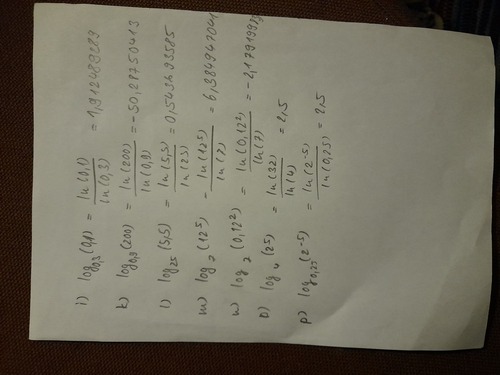 j) log₀,₃ (0,1) = ln(0,1) / ln(0,3) = 1,912489289
k) log₀,₉ (200) = ln(200) / ln(0,9) = -50,28750413
l) log₂₃ (5,5) = ln(5,5) / ln(23) = 0,543693585
m) log₇ (12⁵) = ln(12⁵) / ln(7) = 6,384947041
n) log₇ (0,12²) = ln(0,12²) / ln(7) = -2,1791999
o) log₄ (2⁵) = ln(32) / ln(4) = 2,5
p) log₀,₂₅ (2⁻⁵) = ln(2⁻⁵) / ln(0,25) = 2,5